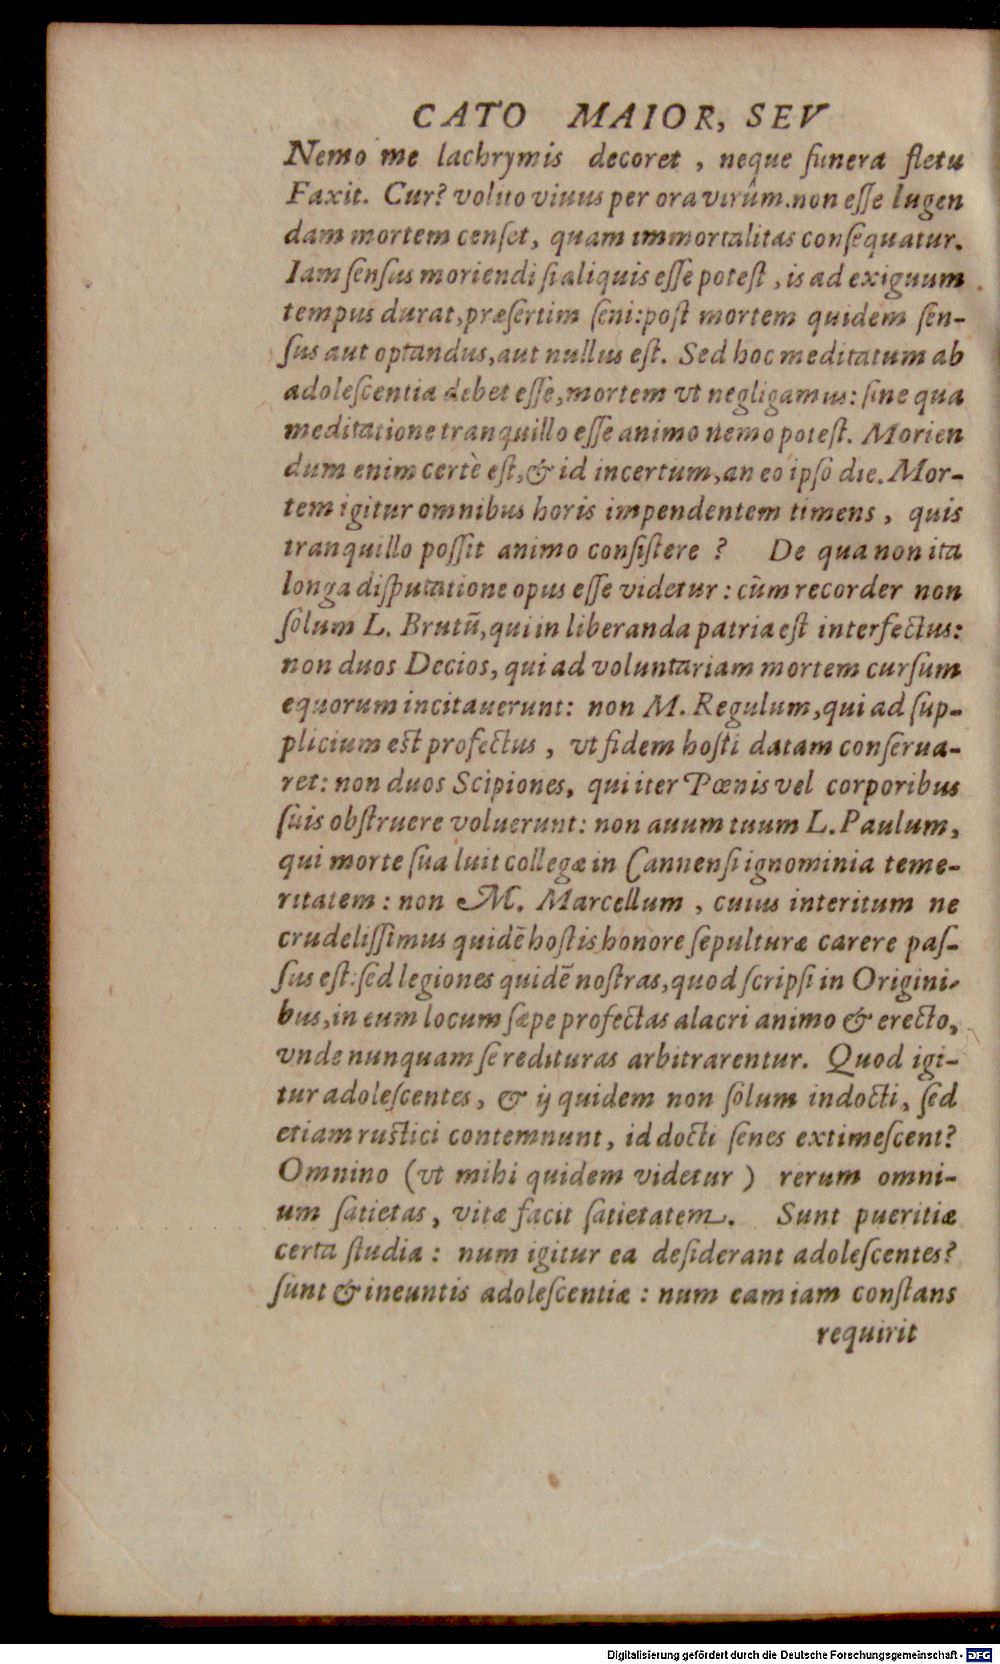 CATO MAIOR, SEV
Nemo me lachrymis decoret , neque funera fletu
Faxit. Cur? volito viuus per ora virûm. non eſſe lugen
dam mortem cenſet, quam immortalitas conſequatur.
Iam ſenſus moriendi ſi aliquis eſſe poteſt , is ad exiguum
tempus durat, præſertim ſeni: poſt mortem quidem ſen-
ſus aut optandus, aut nullus eſt. Sed hoc meditatum ab
adoleſcentia debet eſſe, mortem vt negligamus: ſine qua
meditatione tranquillo eſſe animo nemo poteſt. Morien
dum enim certè eſt, & id incertum, an eo ipſo die. Mor-
tem igitur omnibus horis impendentem timens , quis
tranquillo poſſit animo conſiſtere ? De qua non ita
longa diſputatione opus eſſe videtur : cùm recorder non
ſolum L. Brutũ, qui in liberanda patria eſt interfectus:
non duos Decios, qui ad voluntariam mortem curſum
equorum incitauerunt: non M. Regulum, qui ad ſup-
plicium eſt profectus , vt fidem hoſti datam conſerua-
ret: non duos Scipiones, qui iter Pœnis vel corporibus
ſuis obſtruere voluerunt: non auum tuum L. Paulum,
qui morte ſua luit collegæ in Cannenſi ignominia teme-
ritatem : non M. Marcellum , cuius interitum ne
crudeliſſimus quidẽ hoſtis honore ſepulturæ carere paſ-
ſus eſt: ſed legiones quidẽ noſtras, quod ſcripſi in Origini-
bus, in eum locum ſæpe profectas alacri animo & erecto,
vnde nunquam ſe redituras arbitrarentur. Quod igi-
tur adoleſcentes, & ij quidem non ſolum indocti, ſed
etiam ruſtici contemnunt, id docti ſenes extimeſcent?
Omnino (vt mihi quidem videtur ) rerum omni-
um ſatietas, vitæ facit ſatietatem. Sunt pueritiæ
certa ſtudia : num igitur ea deſiderant adoleſcentes?
ſunt & ineuntis adoleſcentiæ : num eam iam conſtans
requirit
Digitalisierung gefördert durch die Deutsche Forschungsgemeinschaft - DFG